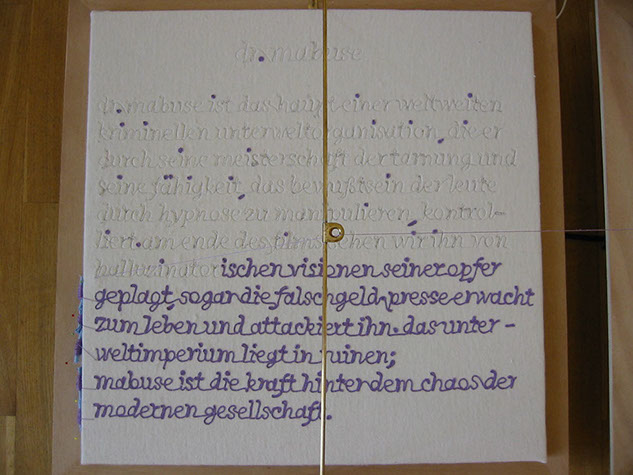 dr. mabuse
dr. mabuse ist das haupt einer weltweiten
kriminellen unterweltorganisation, die er
durch seine meisterschaft der tarnung und
seine fähigkeit, das bewußtsein der leute
durch hyphose zu manipulieren, kontrol-
liert. am ende des films sehen wir ihn von
halluzinatorischen visionen seiner opfer
geplagt, sogar die falschgeld-presse erwacht
zum leben und attackiert ihn. das unter-
weltimperium liegt in ruinen;
mabuse ist die kraft hinter dem chaos der
modernen gesellschaft.